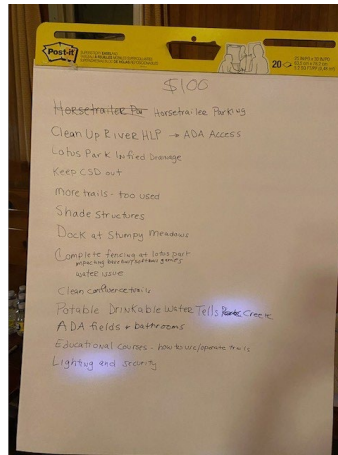 Post-it
20
$100
Horsetrailer Par Horsetrailer Parking
Clean Up River HLP → ADA Access
Lotus Park Infied Drainage
Keep CSD out
more trails - too used
Shade Structures
Dock at Stumpy Meadows
Complete fencing at lotus park
impacting baseball/softball games
water issue
Clean confluence trails
Potable Drinkable Water Tells Creek
ADA fields + bathrooms
Educational courses - how to use/operate trails
Lighting and scurity